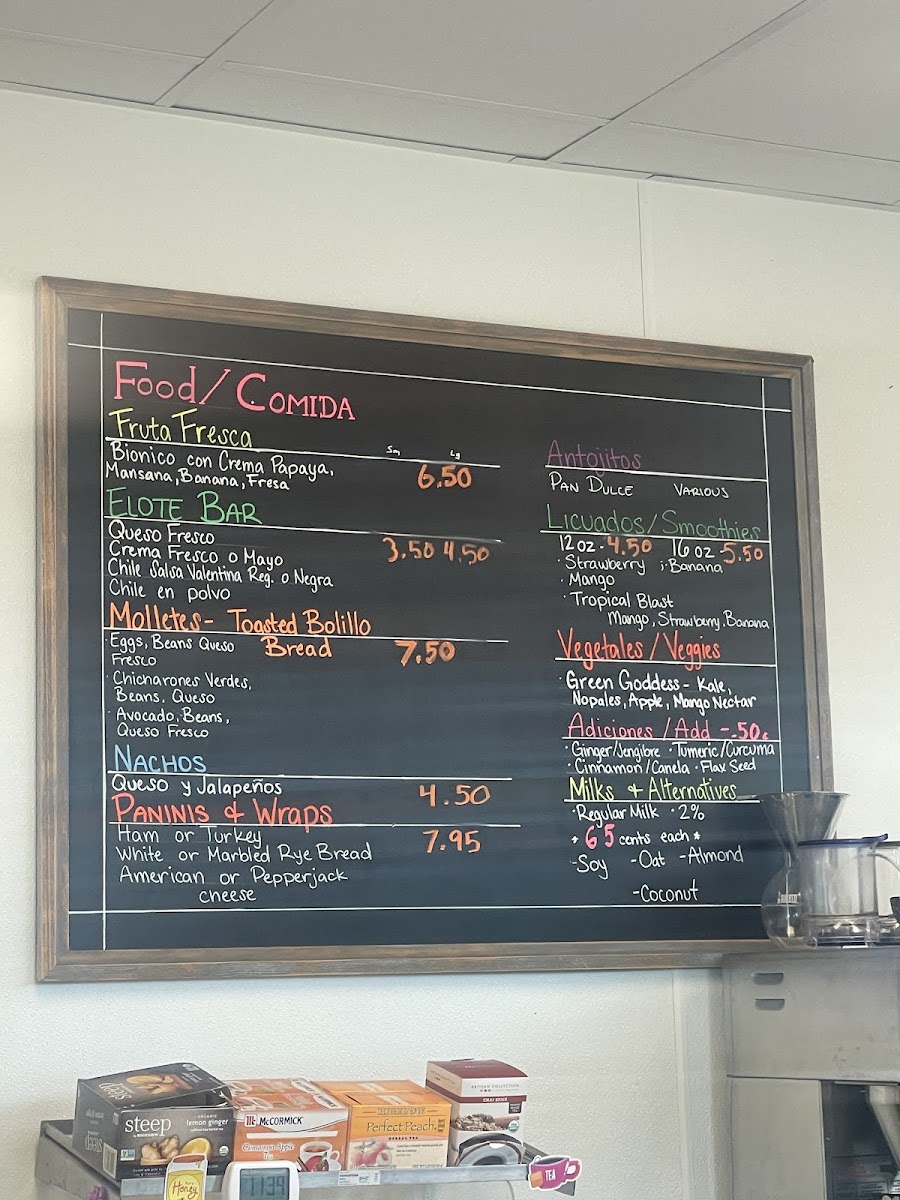 Food/Comida
Fruta Fresca
Sm Lg
Bionico con Crema Papaya,
Mansana, Banana, Fresa
6.50
Elote Bar
Queso Fresco
3.50 4.50
Crema Fresco o Mayo
Chile Salsa Valentina Reg. o Negra
Chile en polvo
Molletes- Toasted Bolillo
Bread
7.50
· Eggs, Beans Queso
Fresco
· Chicharones Verdes,
Beans, Queso
· Avocado, Beans,
Queso Fresco
Nachos
Queso y Jalapeños
4.50
Paninis & Wraps
7.95
Ham or Turkey
White or Marbled Rye Bread
American or Pepperjack
cheese
Antojitos
Pan Dulce Various
Licuados/Smoothies
12 oz - 4.50 16 oz - 5.50
· Strawberry · Banana
· Mango
· Tropical Blast
Mango, Strawberry, Banana
Vegetales/Veggies
· Green Goddess - Kale,
Nopales, Apple, Mango Nectar
Adiciones/Add -.50¢
· Ginger/Jengibre · Tumeric/Curcuma
· Cinnamon/Canela · Flax Seed
Milks + Alternatives
· Regular Milk · 2%
* 65 cents each *
-Soy -Oat -Almond
-Coconut
steep
ORGANIC
lemon ginger
McCORMICK
Cinnamon Apple
Tea
BIGELOW
Perfect Peach
HERBAL TEA
ARTISAN COLLECTION
CHAI SPICE
Honey
1139
TEA